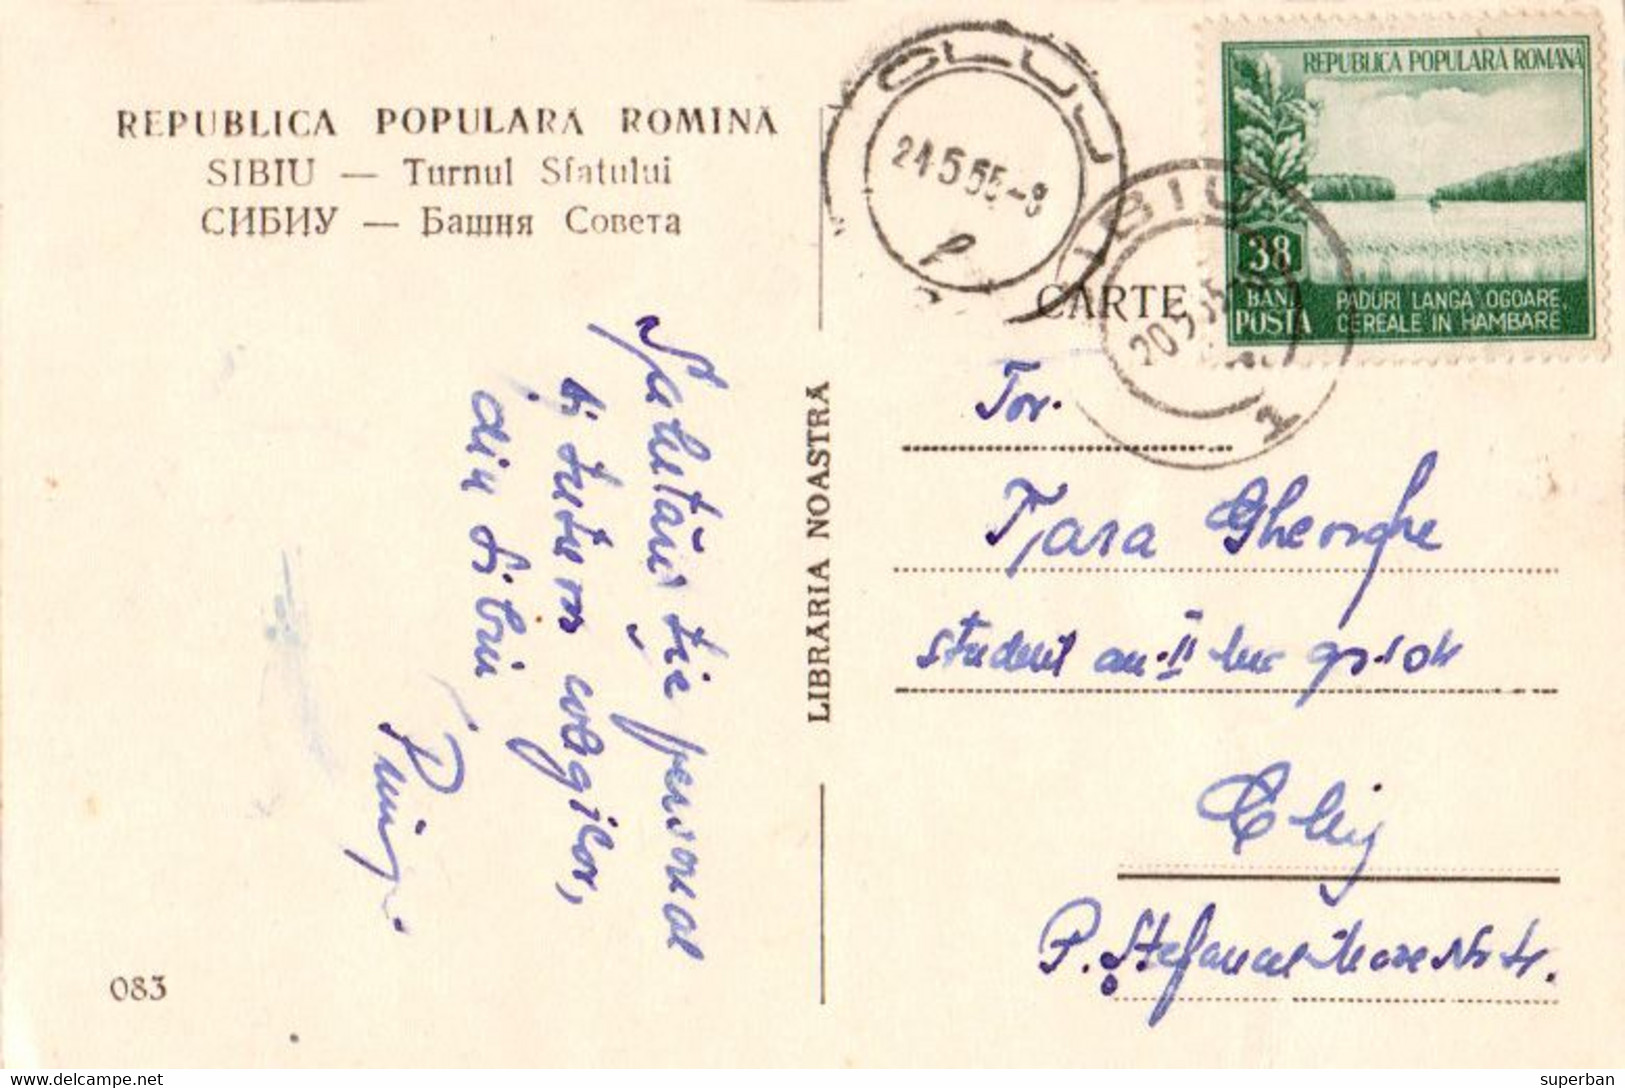 REPUBLICA POPULARĂ ROMINĂ
SIBIU — Turnul Sfatului
СИБИУ — Башня Совета
Salutări ție personal
și tuturor colegilor,
din Sibiu
083
LIBRARIA NOASTRĂ
CLUJ
21 5 55-8
SIBIU
20 5 55
1
REPUBLICA POPULARĂ ROMÂNĂ
38
BANI
POSTA
PADURI LANGA OGOARE,
CEREALE IN HAMBARE
CARTE
Tov.
Țara Gheorghe
student an. II
Cluj
P. Ștefan cel Mare Nr
delcampe.net
superban